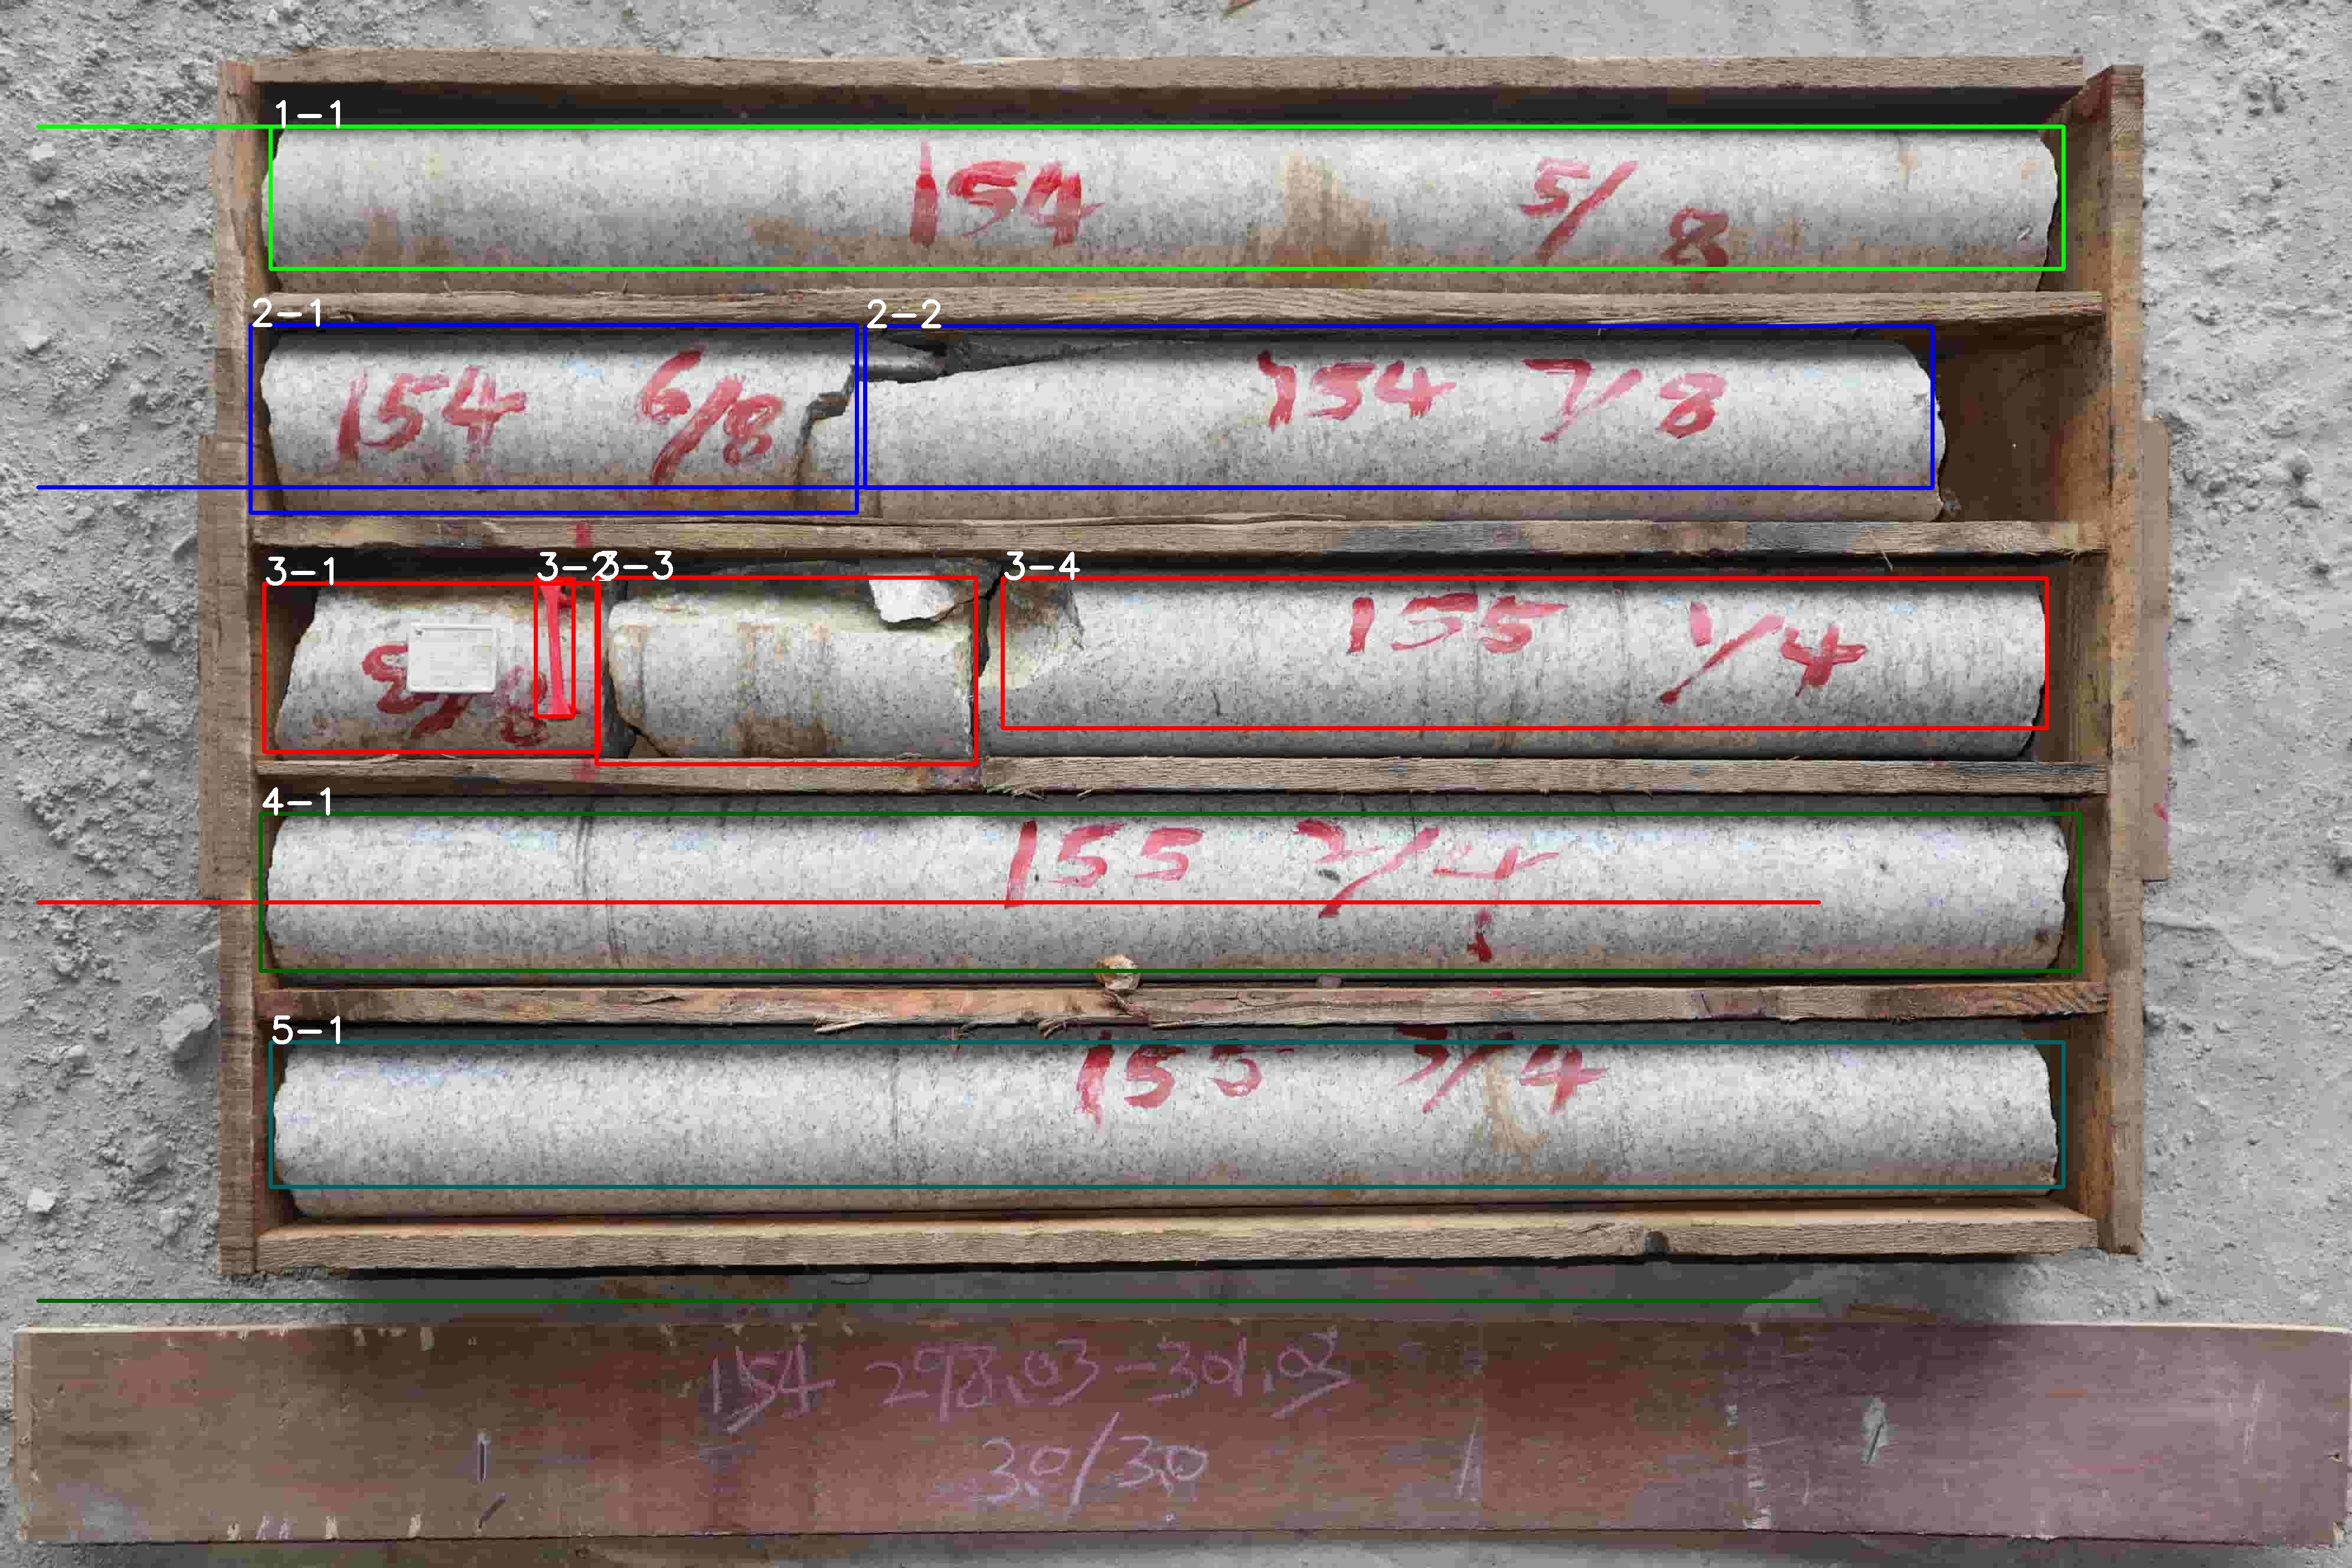 1-1
154 5/8
2-1 2-2
154 6/8 154 7/8
3-1 3-2 3-3 3-4
8/8 155 1/4
4-1
155 2/4
5-1
155 3/4
154 298.03-301.03
3.0/3.0